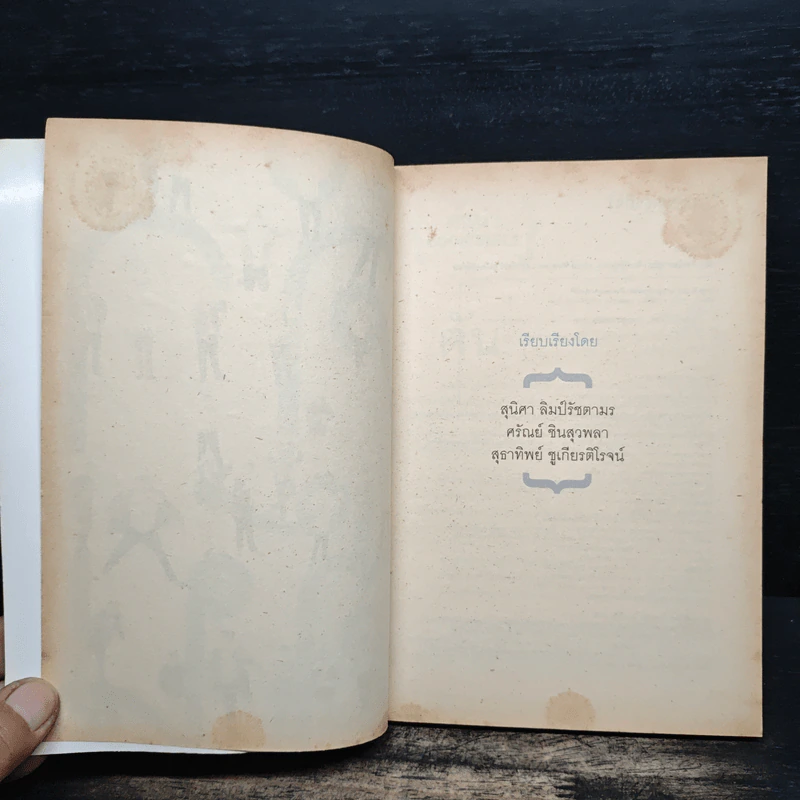 เรียบเรียงโดย
สุนิศา ลิมป์รัชตามร
ศรัณย์ ชินสุวพลา
สุธาทิพย์ ชูเกียรติโรจน์